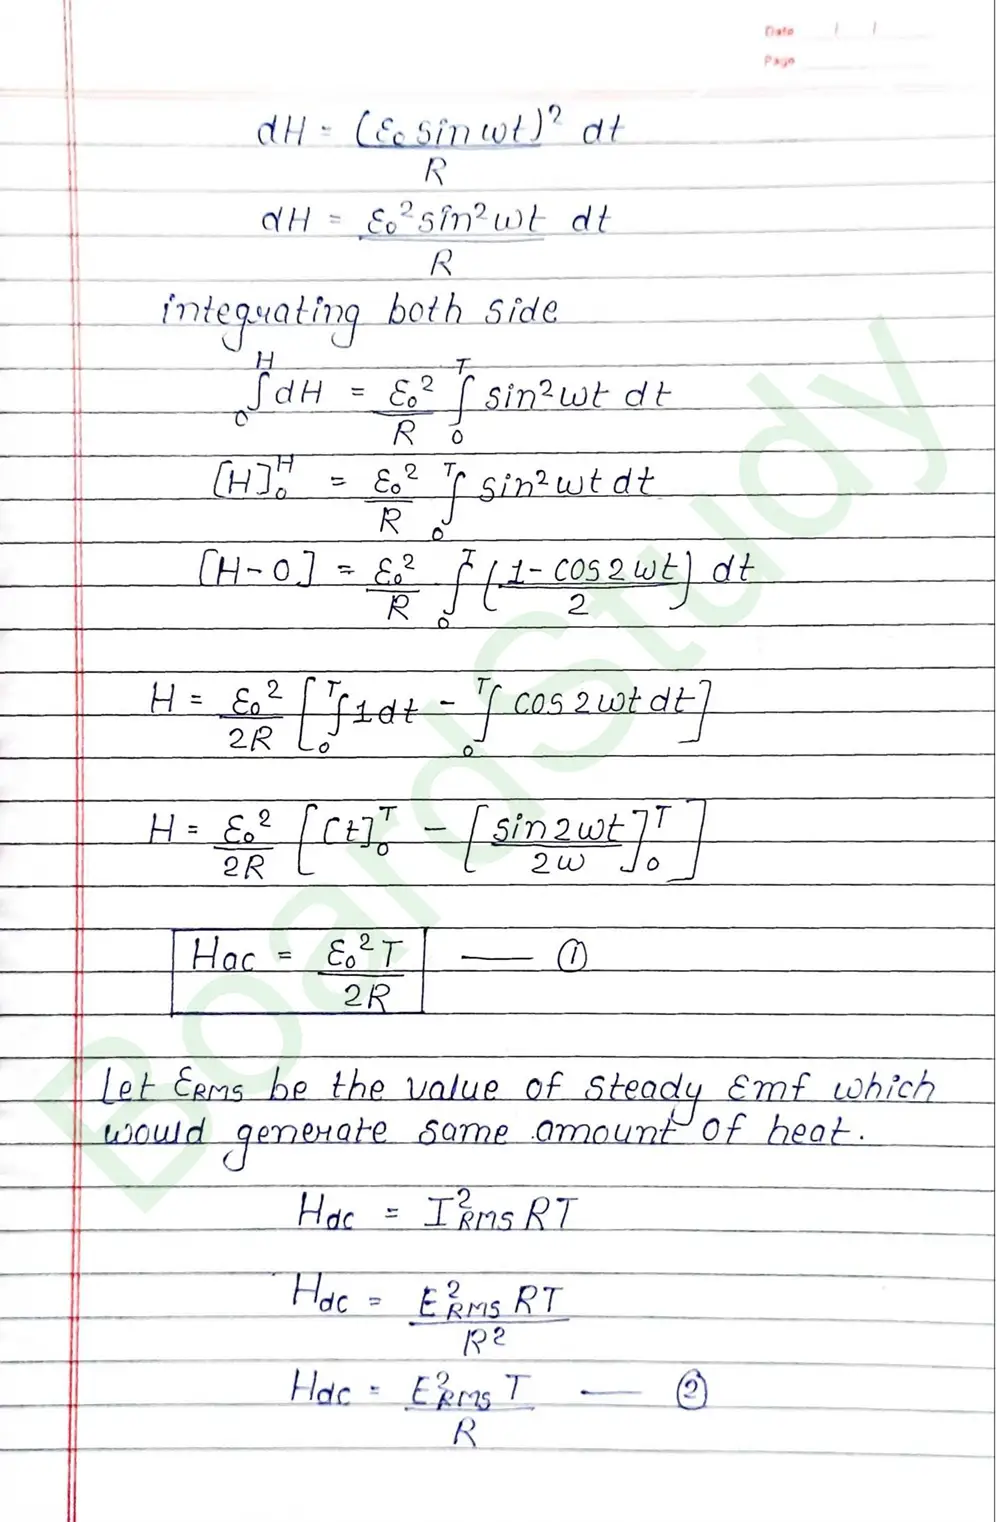 Date / /
Page
dH = (ε₀ sin ωt)² / R dt
dH = ε₀² sin² ωt / R dt
integrating both side
₀∫ᴴ dH = ε₀² / R ₀∫ᵀ sin² ωt dt
[H]₀ᴴ = ε₀² / R ₀∫ᵀ sin² ωt dt
[H-0] = ε₀² / R ₀∫ᵀ (1 - cos 2ωt / 2) dt
H = ε₀² / 2R [₀∫ᵀ 1 dt - ₀∫ᵀ cos 2ωt dt]
H = ε₀² / 2R [[t]₀ᵀ - [sin 2ωt / 2ω]₀ᵀ]
Hac = ε₀² T / 2R — ①
Let εRMS be the value of steady Emf which
would generate same amount of heat.
Hdc = I²RMS RT
Hdc = E²RMS RT / R²
Hdc = E²RMS T / R — ②
BoardStudy